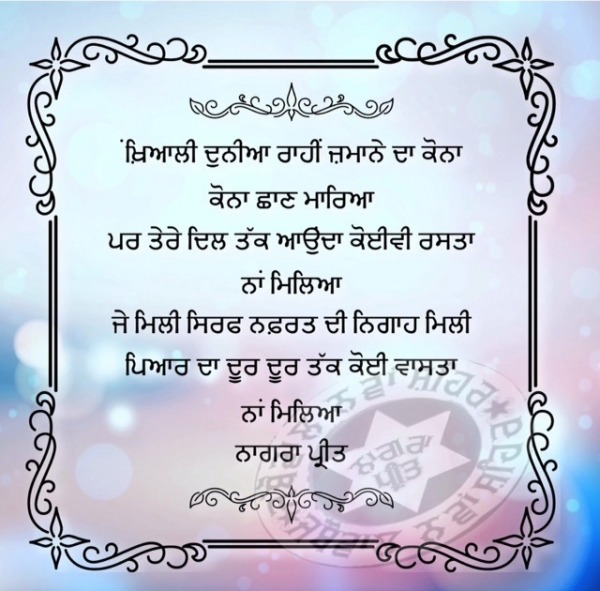 ਖ਼ਿਆਲੀ ਦੁਨੀਆ ਰਾਹੀਂ ਜ਼ਮਾਨੇ ਦਾ ਕੋਨਾ
ਕੋਨਾ ਛਾਣ ਮਾਰਿਆ
ਪਰ ਤੇਰੇ ਦਿਲ ਤੱਕ ਆਉਂਦਾ ਕੋਈਵੀ ਰਸਤਾ
ਨਾਂ ਮਿਲਿਆ
ਜੇ ਮਿਲੀ ਸਿਰਫ ਨਫ਼ਰਤ ਦੀ ਨਿਗਾਹ ਮਿਲੀ
ਪਿਆਰ ਦਾ ਦੂਰ ਦੂਰ ਤੱਕ ਕੋਈ ਵਾਸਤਾ
ਨਾਂ ਮਿਲਿਆ
ਨਾਗਰਾ ਪ੍ਰੀਤ
ਨਾਗਰਾ
ਪ੍ਰੀਤ